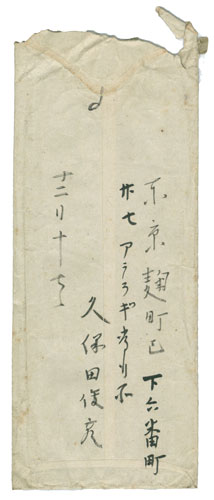 東京麹町区下六番町
廿七 アララギ発行所
久保田俊彦
十二月十七日